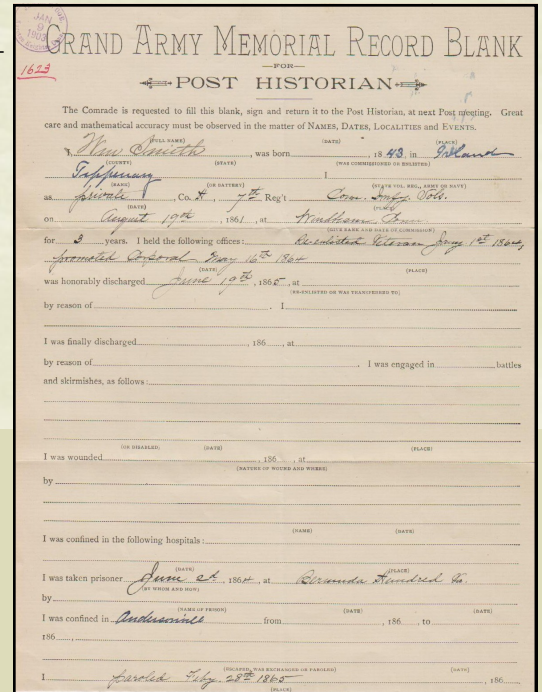 JAN
9
1903
1623
GRAND ARMY MEMORIAL RECORD BLANK
—FOR—
POST HISTORIAN
The Comrade is requested to fill this blank, sign and return it to the Post Historian, at next Post meeting. Great
care and mathematical accuracy must be observed in the matter of NAMES, DATES, LOCALITIES and EVENTS.
(FULL NAME) (DATE) (PLACE)
I, Wm Smith, was born, 1843, in Ireland
(COUNTY) (STATE) (WAS COMMISSIONED OR ENLISTED)
Tipperary I
(RANK) (OR BATTERY) (STATE VOL. REG., ARMY OR NAVY)
as private, Co. , 7th Reg't Conn. Infy. Vols.
(DATE) (PLACE)
on August 19th, 1861, at Windham Conn
(GIVE RANK AND DATE OF COMMISSION)
for 3 years. I held the following offices: Re-enlisted Veteran Jany 1st 1864,
promoted Corporal May 16th 1864
(DATE) (PLACE)
was honorably discharged June 19th, 1865, at
(RE-ENLISTED OR WAS TRANSFERRED TO)
by reason of. I
I was finally discharged, 186, at
by reason of. I was engaged in battles
and skirmishes, as follows:
(OR DISABLED) (DATE) (PLACE)
I was wounded, 186, at
(NATURE OF WOUND AND WHERE)
by
(NAME) (DATE)
I was confined in the following hospitals:
(DATE) (PLACE)
I was taken prisoner June 2d, 1864, at Bermuda Hundred Va.
(BY WHOM AND HOW)
by
(NAME OF PRISON) (DATE) (DATE)
I was confined in Andersonville from, 186, to
186,
(ESCAPED, WAS EXCHANGED OR PAROLED) (DATE)
I paroled Feby. 28th 1865, 186
(PLACE)